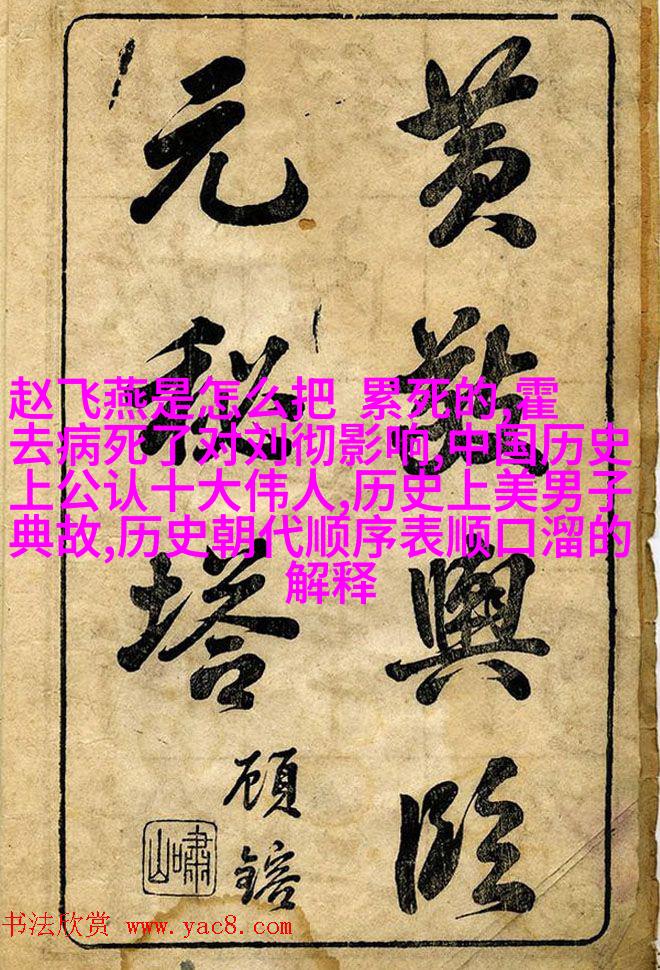 黃敬輿臨
元秘塔
頋鎔
嘯山
赵飞燕是怎么把 累死的,霍
去病死了对刘彻影响,中国历史
上公认十大伟人,历史上美男子
典故,历史朝代顺序表顺口溜的
解释
书法欣赏 www.yac8.com